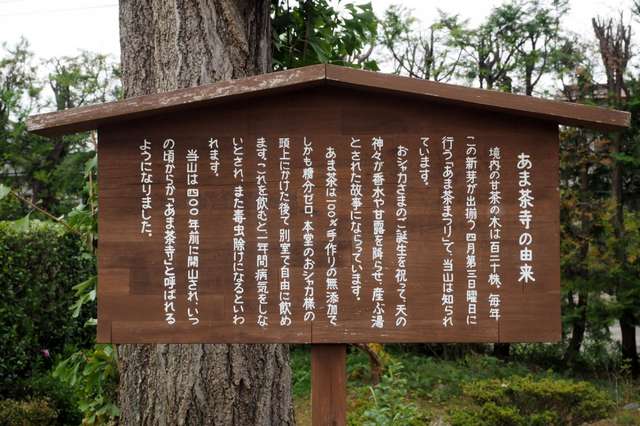 あま茶寺の由来
境内の甘茶の木は百二十株、毎年
この新芽が出揃う四月第三日曜日に
行う「あま茶まつり」で、当山は知られ
ています。
おシャカさまのご誕生を祝って、天の
神々が香水や甘露を降らせ、産ぶ湯
とされた故事にならっています。
あま茶は一〇〇%手作りの無添加で
しかも糖分ゼロ、本堂のおシャカ様の
頭上にかけた後で、別室で自由に飲め
ます。これを飲むと一年間病気をしな
いとされ、また毒虫除けになるといわ
れます。
当山は四〇〇年前に開山され、いつ
の頃からか「あま茶寺」と呼ばれる
ようになりました。